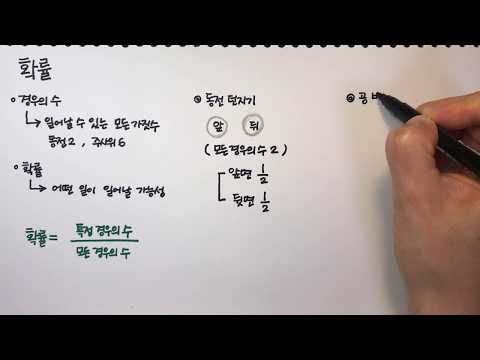 확률
○ 경우의 수
↳ 일어날 수 있는 모든 가짓수
동전 2 , 주사위 6
○ 확률
↳ 어떤 일이 일어날 가능성
확률 = 특정 경우의 수 / 모든 경우의 수
◎ 동전 던지기
앞 뒤
( 모든 경우의 수 2 )
앞면 1/2
뒷면 1/2
◎ 공